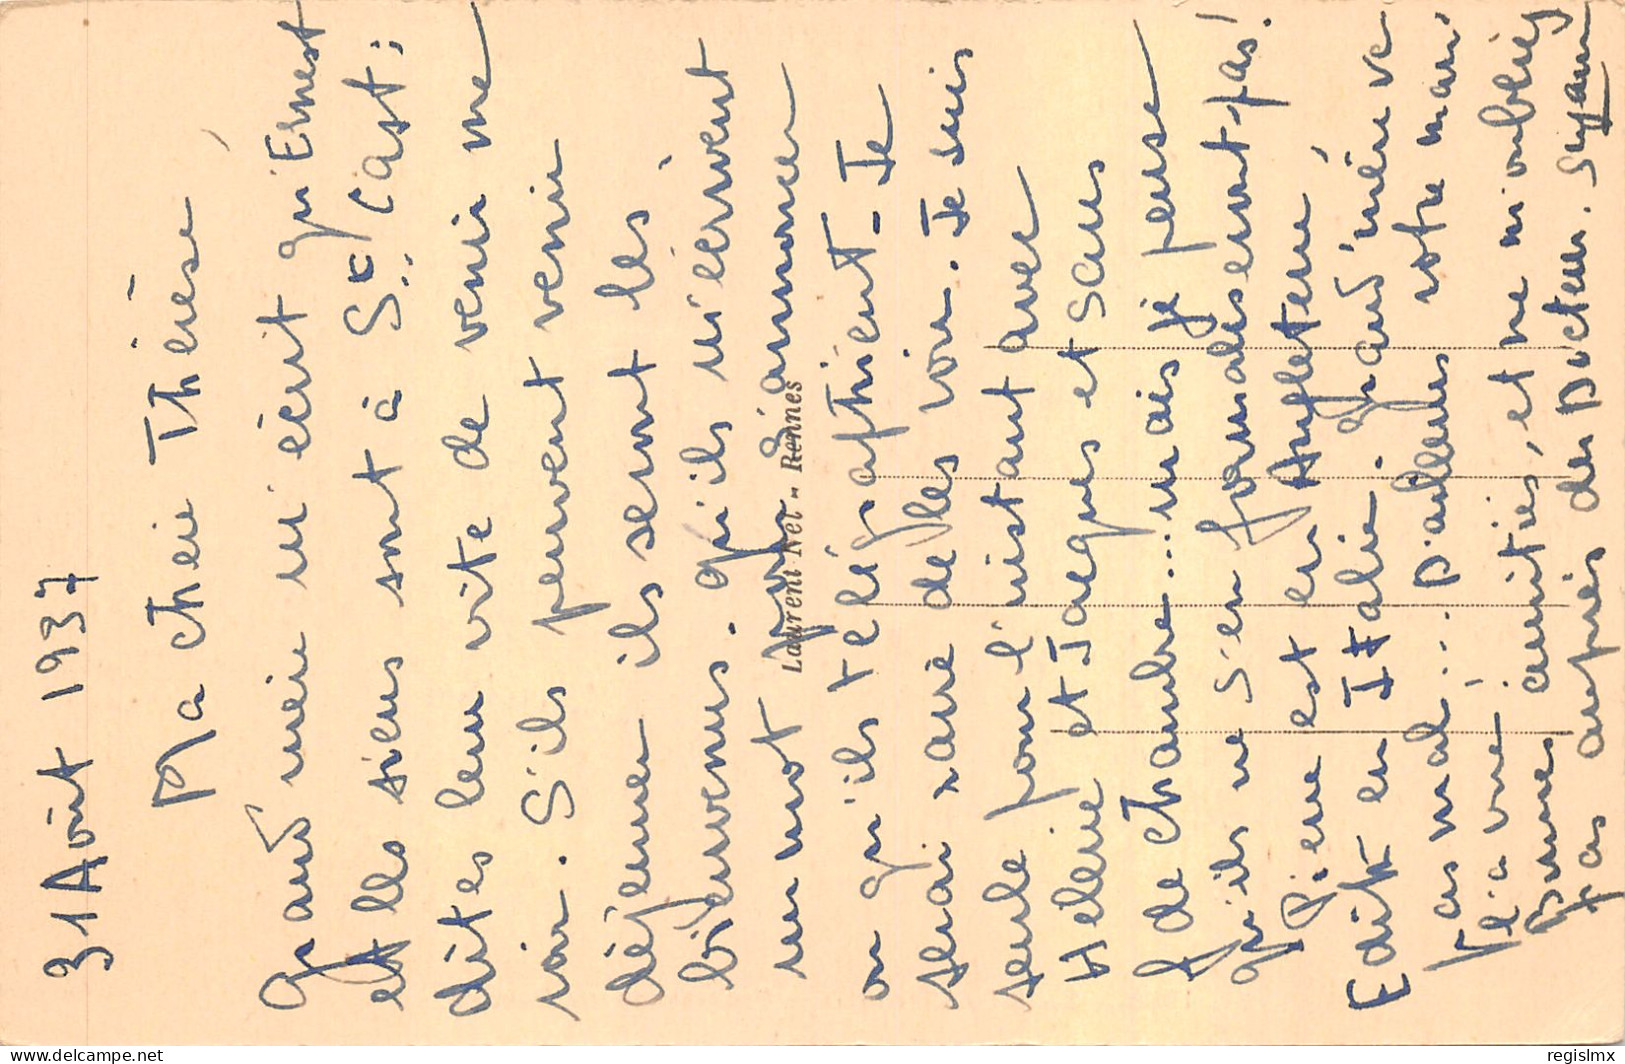 31 Août 1937
Ma chère Thérèse,
Grand'mère m'écrit qu'Ernest
et les siens sont à St Cast :
dites leur vite de venir me
voir. S'ils peuvent venir
déjeuner ils seront les
bienvenus. qu'ils m'écrivent
un mot pour l'annoncer
ou qu'ils téléphonent - Je
serai ravie de les voir. Je suis
seule pour l'instant avec
Hélène et Jacques et sans
femme de chambre... mais je pense
qu'ils ne s'en formaliseront pas !
Pierre est en Angleterre,
Edith en Italie. Grand'mère va
pas mal... D'ailleurs votre mari
l'a vue !
Bonnes amitiés, et ne m'oubliez
pas auprès du Docteur. Suzanne
Laurent-Nel - Rennes
regislmx